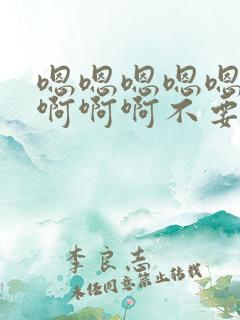 嗯嗯嗯嗯嗯
啊啊啊不要
李良志
未经同意禁止转载